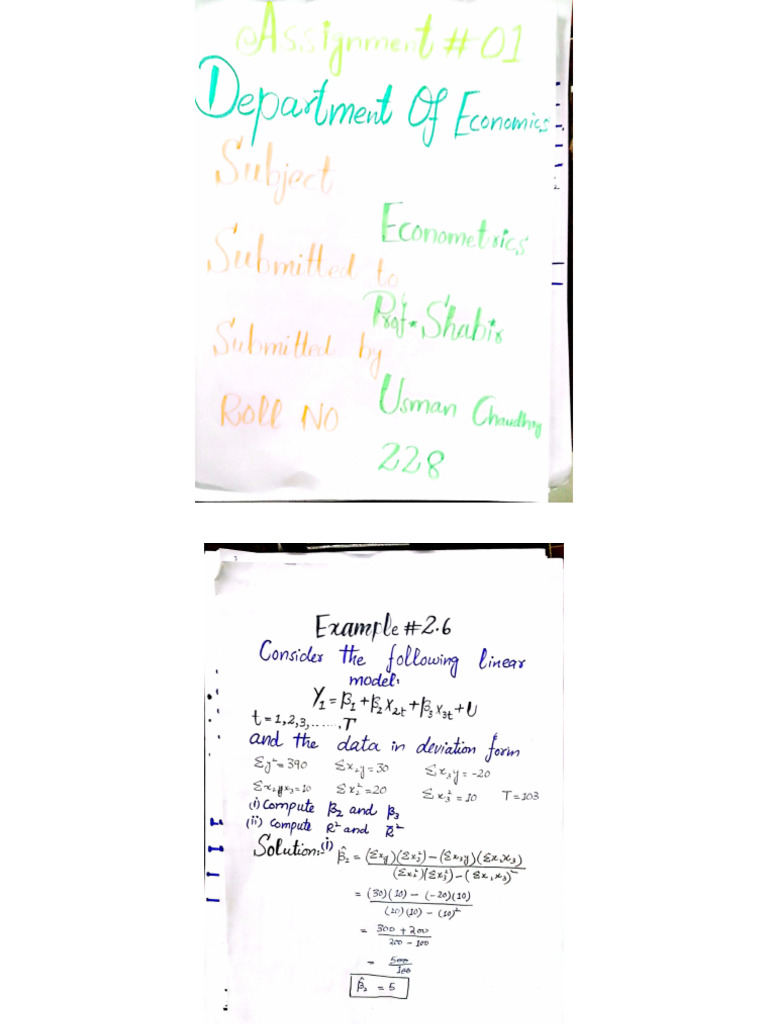 Assignment # 01
Department Of Economics
Subject
Econometrics
Submitted to
Prof. Shabir
Submitted by
Usman Chaudhry
Roll NO
228
Example # 2.6
Consider the following linear
model:
Y₁ = β₁ + β₂X₂t + β₃X₃t + U
t = 1,2,3,......,T
and the data in deviation form
Σy² = 390 Σx₂y = 30 Σx₃y = -20
Σx₂x₃ = 10 Σx₂² = 20 Σx₃² = 10 T = 103
(i) Compute β₂ and β₃
(ii) Compute R² and R̄²
Solution:- (i) β̂₂ = (Σxy)(Σx₃²) - (Σx₃y)(Σx₁x₃)
(Σx₁²)(Σx₃²) - (Σx₁x₃)²
= (30)(10) - (-20)(10)
(20)(10) - (10)²
= 300 + 200
200 - 100
= 500
100
β̂₂ = 5